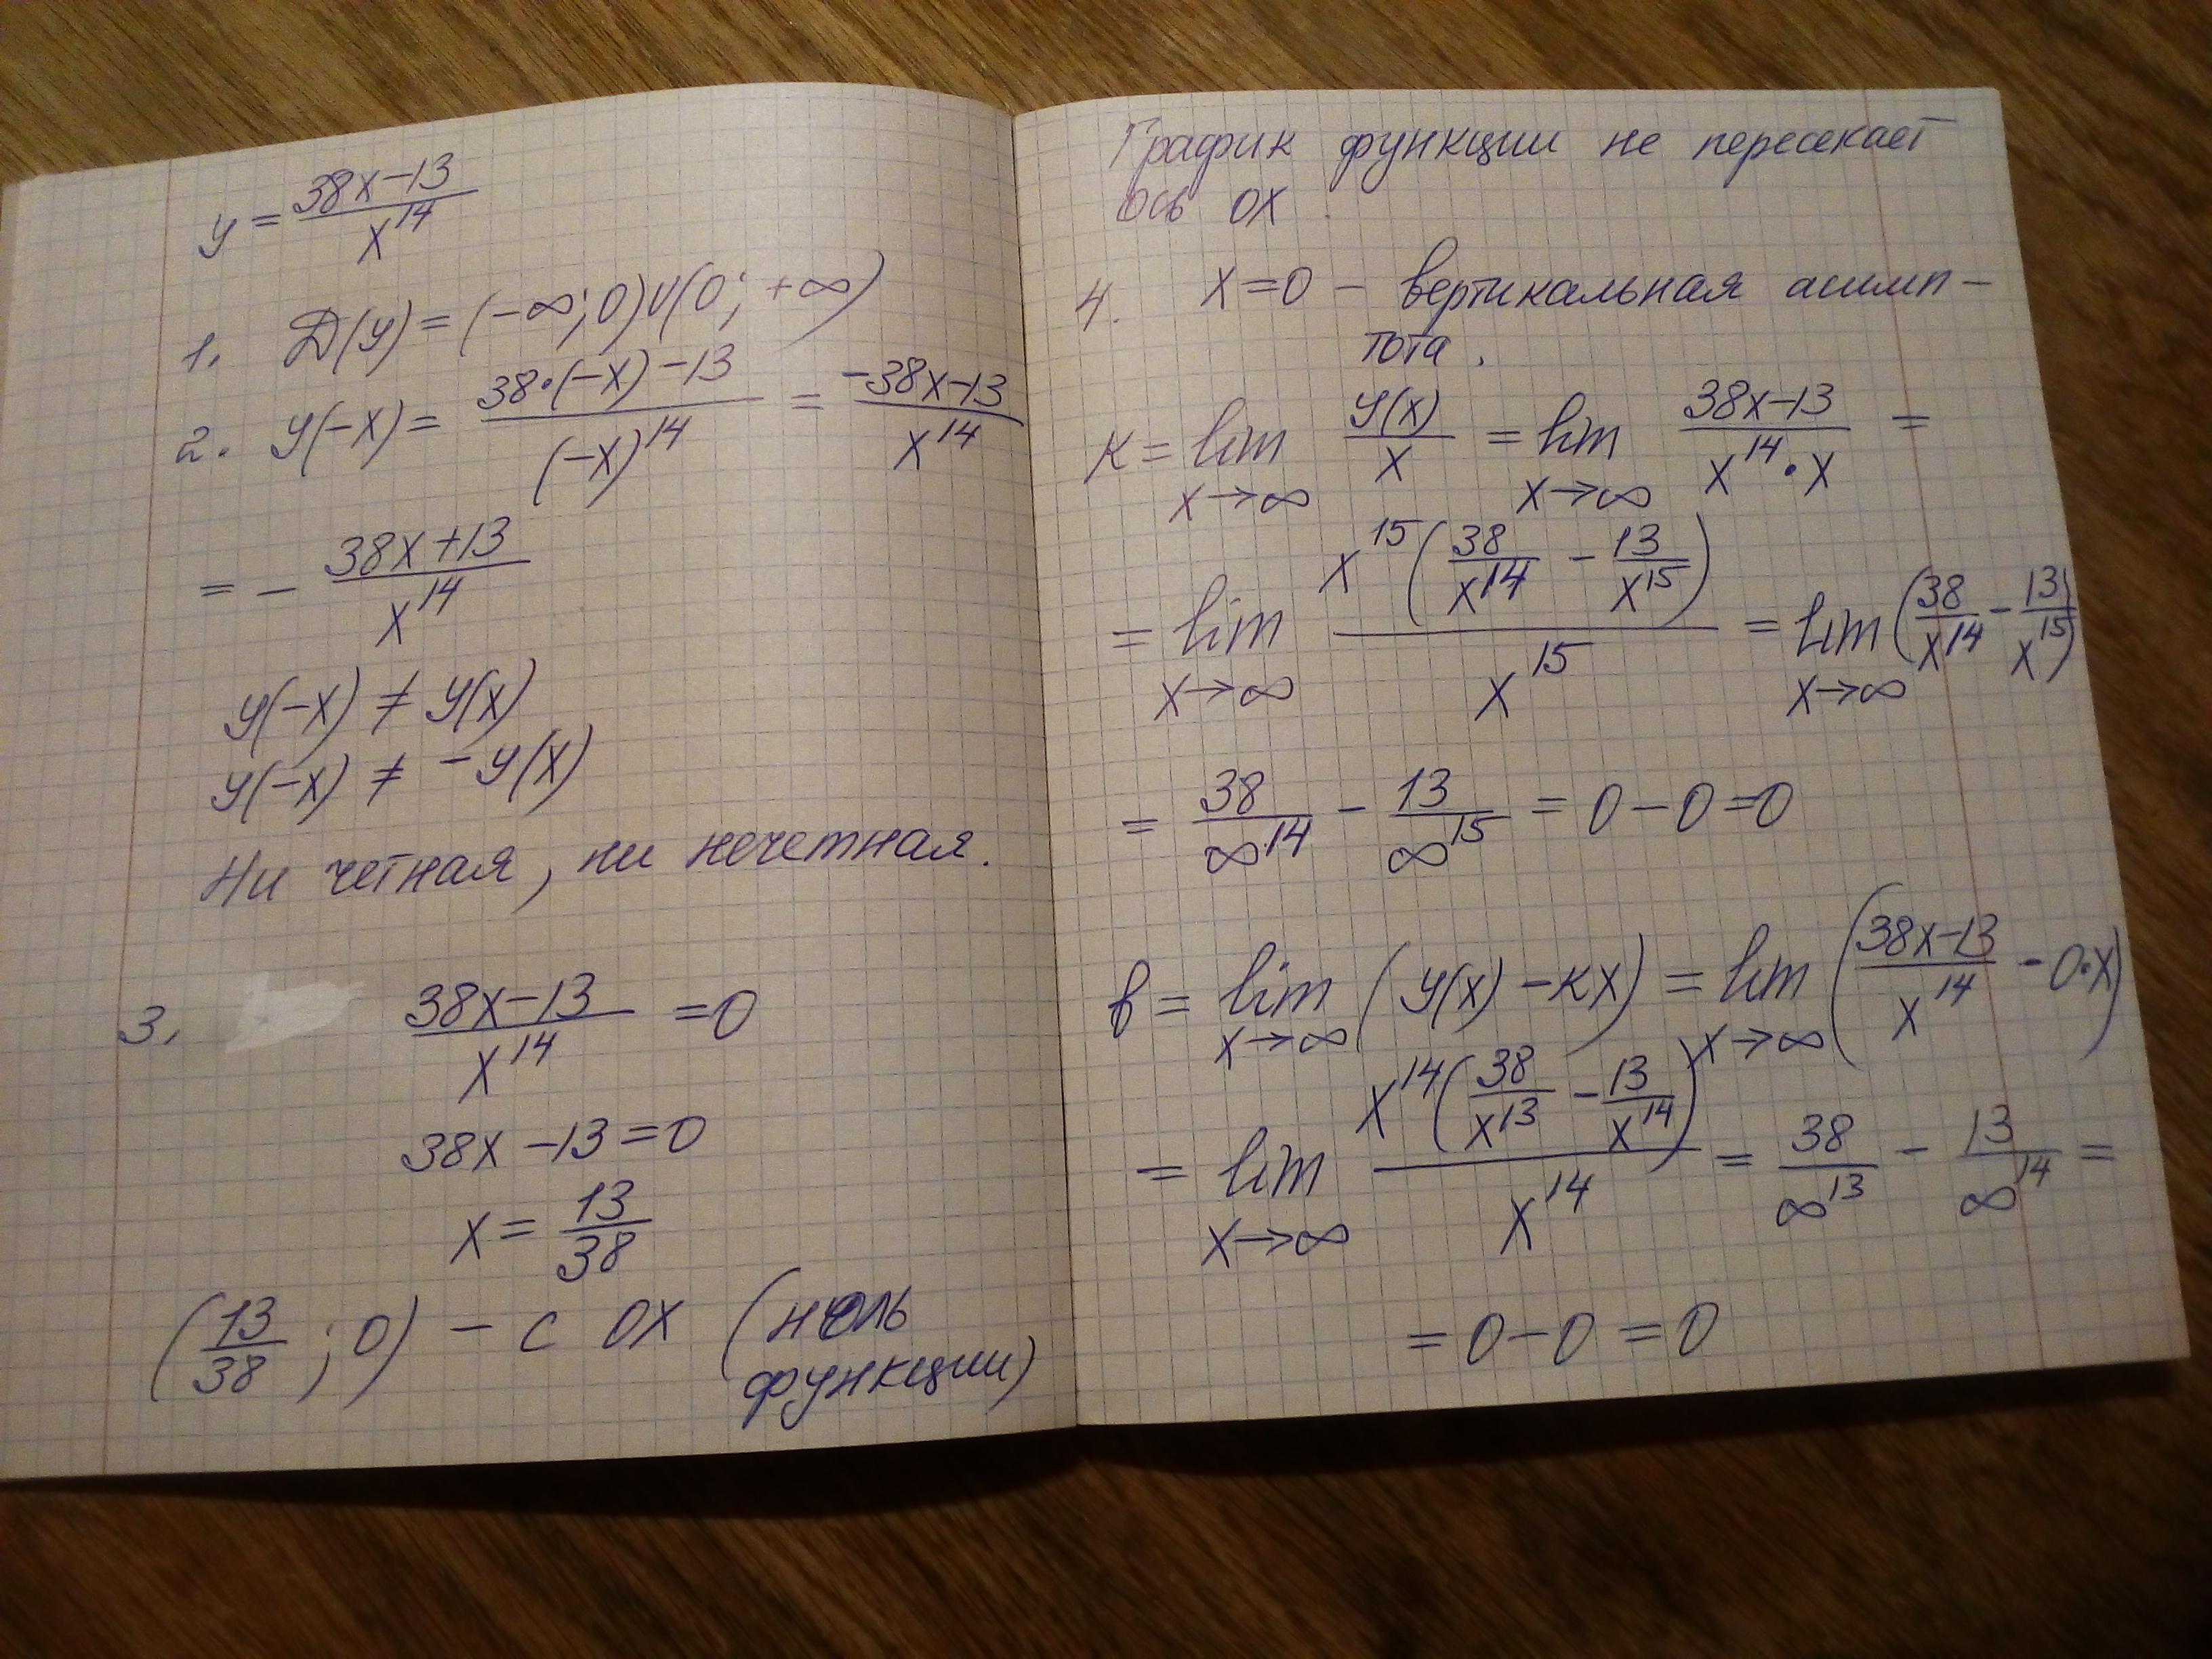 y = (38x-13)/x^14
1. D(y) = (-∞; 0)∪(0; +∞)
2. y(-x) = (38·(-x)-13)/(-x)^14 = (-38x-13)/x^14
= - (38x+13)/x^14
y(-x) ≠ y(x)
y(-x) ≠ -y(x)
Ни четная, ни нечетная.
3. (38x-13)/x^14 = 0
38x-13=0
x = 13/38
(13/38; 0) - с OX (ноль
функции)
График функции не пересекает
ось OX.
4. x=0 - вертикальная асимп-
тота.
к = lim x→∞ y(x)/x = lim x→∞ (38x-13)/(x^14·x) =
= lim x→∞ x^15(38/x^14 - 13/x^15)/x^15 = lim x→∞ (38/x^14 - 13/x^15)
= 38/∞^14 - 13/∞^15 = 0-0=0
в = lim x→∞ (y(x)-кx) = lim x→∞ ((38x-13)/x^14 - 0·x)
= lim x→∞ x^14(38/x^13 - 13/x^14)/x^14 = 38/∞^13 - 13/∞^14 =
= 0-0 = 0